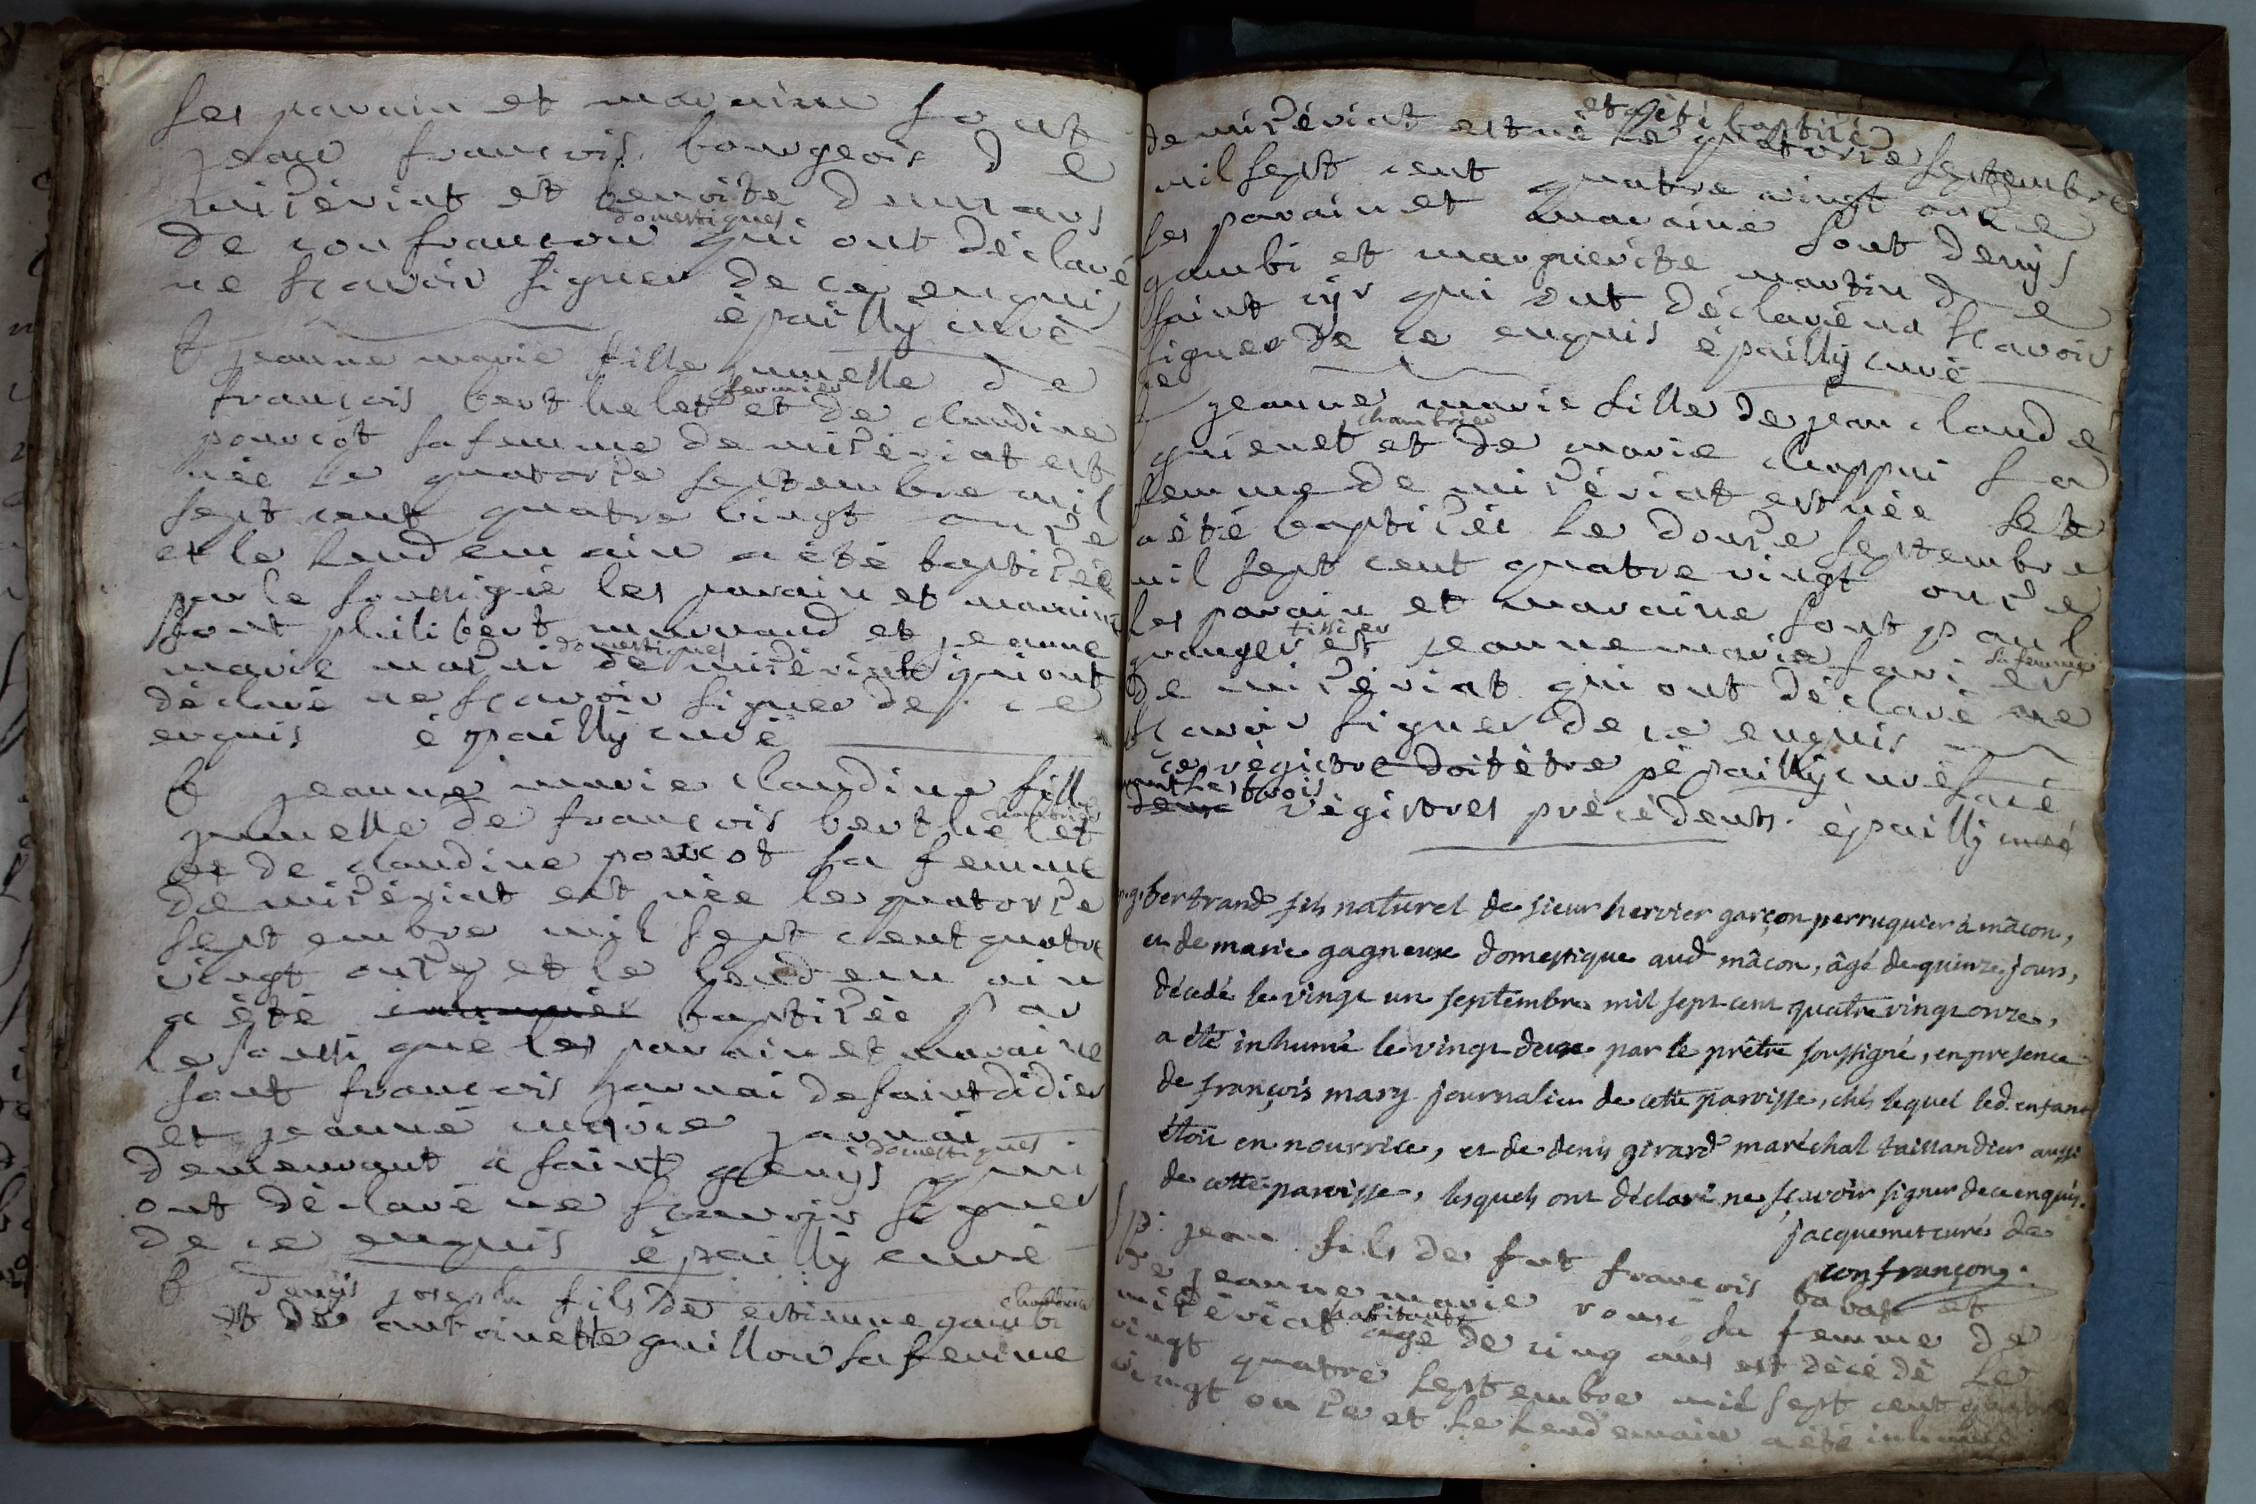 les parain et maraine sont
jean françois bourgeois de
mizériat et benoite demiars
domestiques
de confrançon qui ont déclaré
ne sçavoir signer de ce enquis
épailly curé
b jeanne marie fille jumelle de
fermier
françois berthelet et de claudine
pourcot sa femme de mizériat est
née le quatorze septembre mil
sept cent quatre vingt onze
et le lendemain a été baptizée
par le soussigné les parain et maraine
sont philibert et jeanne
domestiques
marie de mizériat qui ont
déclaré ne sçavoir signer de ce
enquis épailly curé
b jeanne marie claudine fille
jumelle de françois berthelet
et de claudine pourcot sa femme
de mizériat est née le quatorze
septembre mil sept cent quatre
vingt onze et le lendemain
a été baptizée par
le soussigné les parain et maraine
sont françois de saint didier
et jeanne marie
domestiques
demeurant a saint genys qui
ont déclaré ne sçavoir signer
de ce enquis épailly curé
b denys joseph fils de estienne gambi
et de antoinette guillon sa femme
et a été baptizé
de mizériat est né le quatorze septembre
mil sept cent quatre vingt onze
les parain et maraine sont denys
gambi et marguerite martin de
saint cyr qui ont déclaré ne sçavoir
signer de ce enquis épailly curé
b jeanne marie fille de jean claude
guienet et de marie chappui sa
femme de mizériat est née et
a été baptizée le douze septembre
mil sept cent quatre vingt onze
les parain et maraine sont paul
tissier
granger et jeanne marie favier
sa femme
de mizériat qui ont déclaré ne
sçavoir signer de ce enquis
ce régistre doit être épailly curé
avant les trois
deux régistres précédents épailly curé
bertrand fils naturel de sieur hervier garçon perruquier à mâcon,
et de marie gagneuse domestique aud mâcon, âgé de quinze jours,
décédé le vingt un septembre mil sept cent quatre vingt onze,
a été inhumé le vingt deux par le prêtre soussigné, en presence
de françois mary journalier de cette paroisse, chés lequel led. enfant
étoit en nourrice, et de denis girard maréchal taillandier aussi
de cette paroisse, lesquels ont déclaré ne sçavoir signer de ce enquis.
jacquemet curé de
confrançon.
jean fils de fut françois et
de jeanne marie roux sa femme de
habitants
mizériat agé de cinq ans est décédé le
vingt quatre septembre mil sept cent quatre
vingt onze et le lendemain a été inhumé